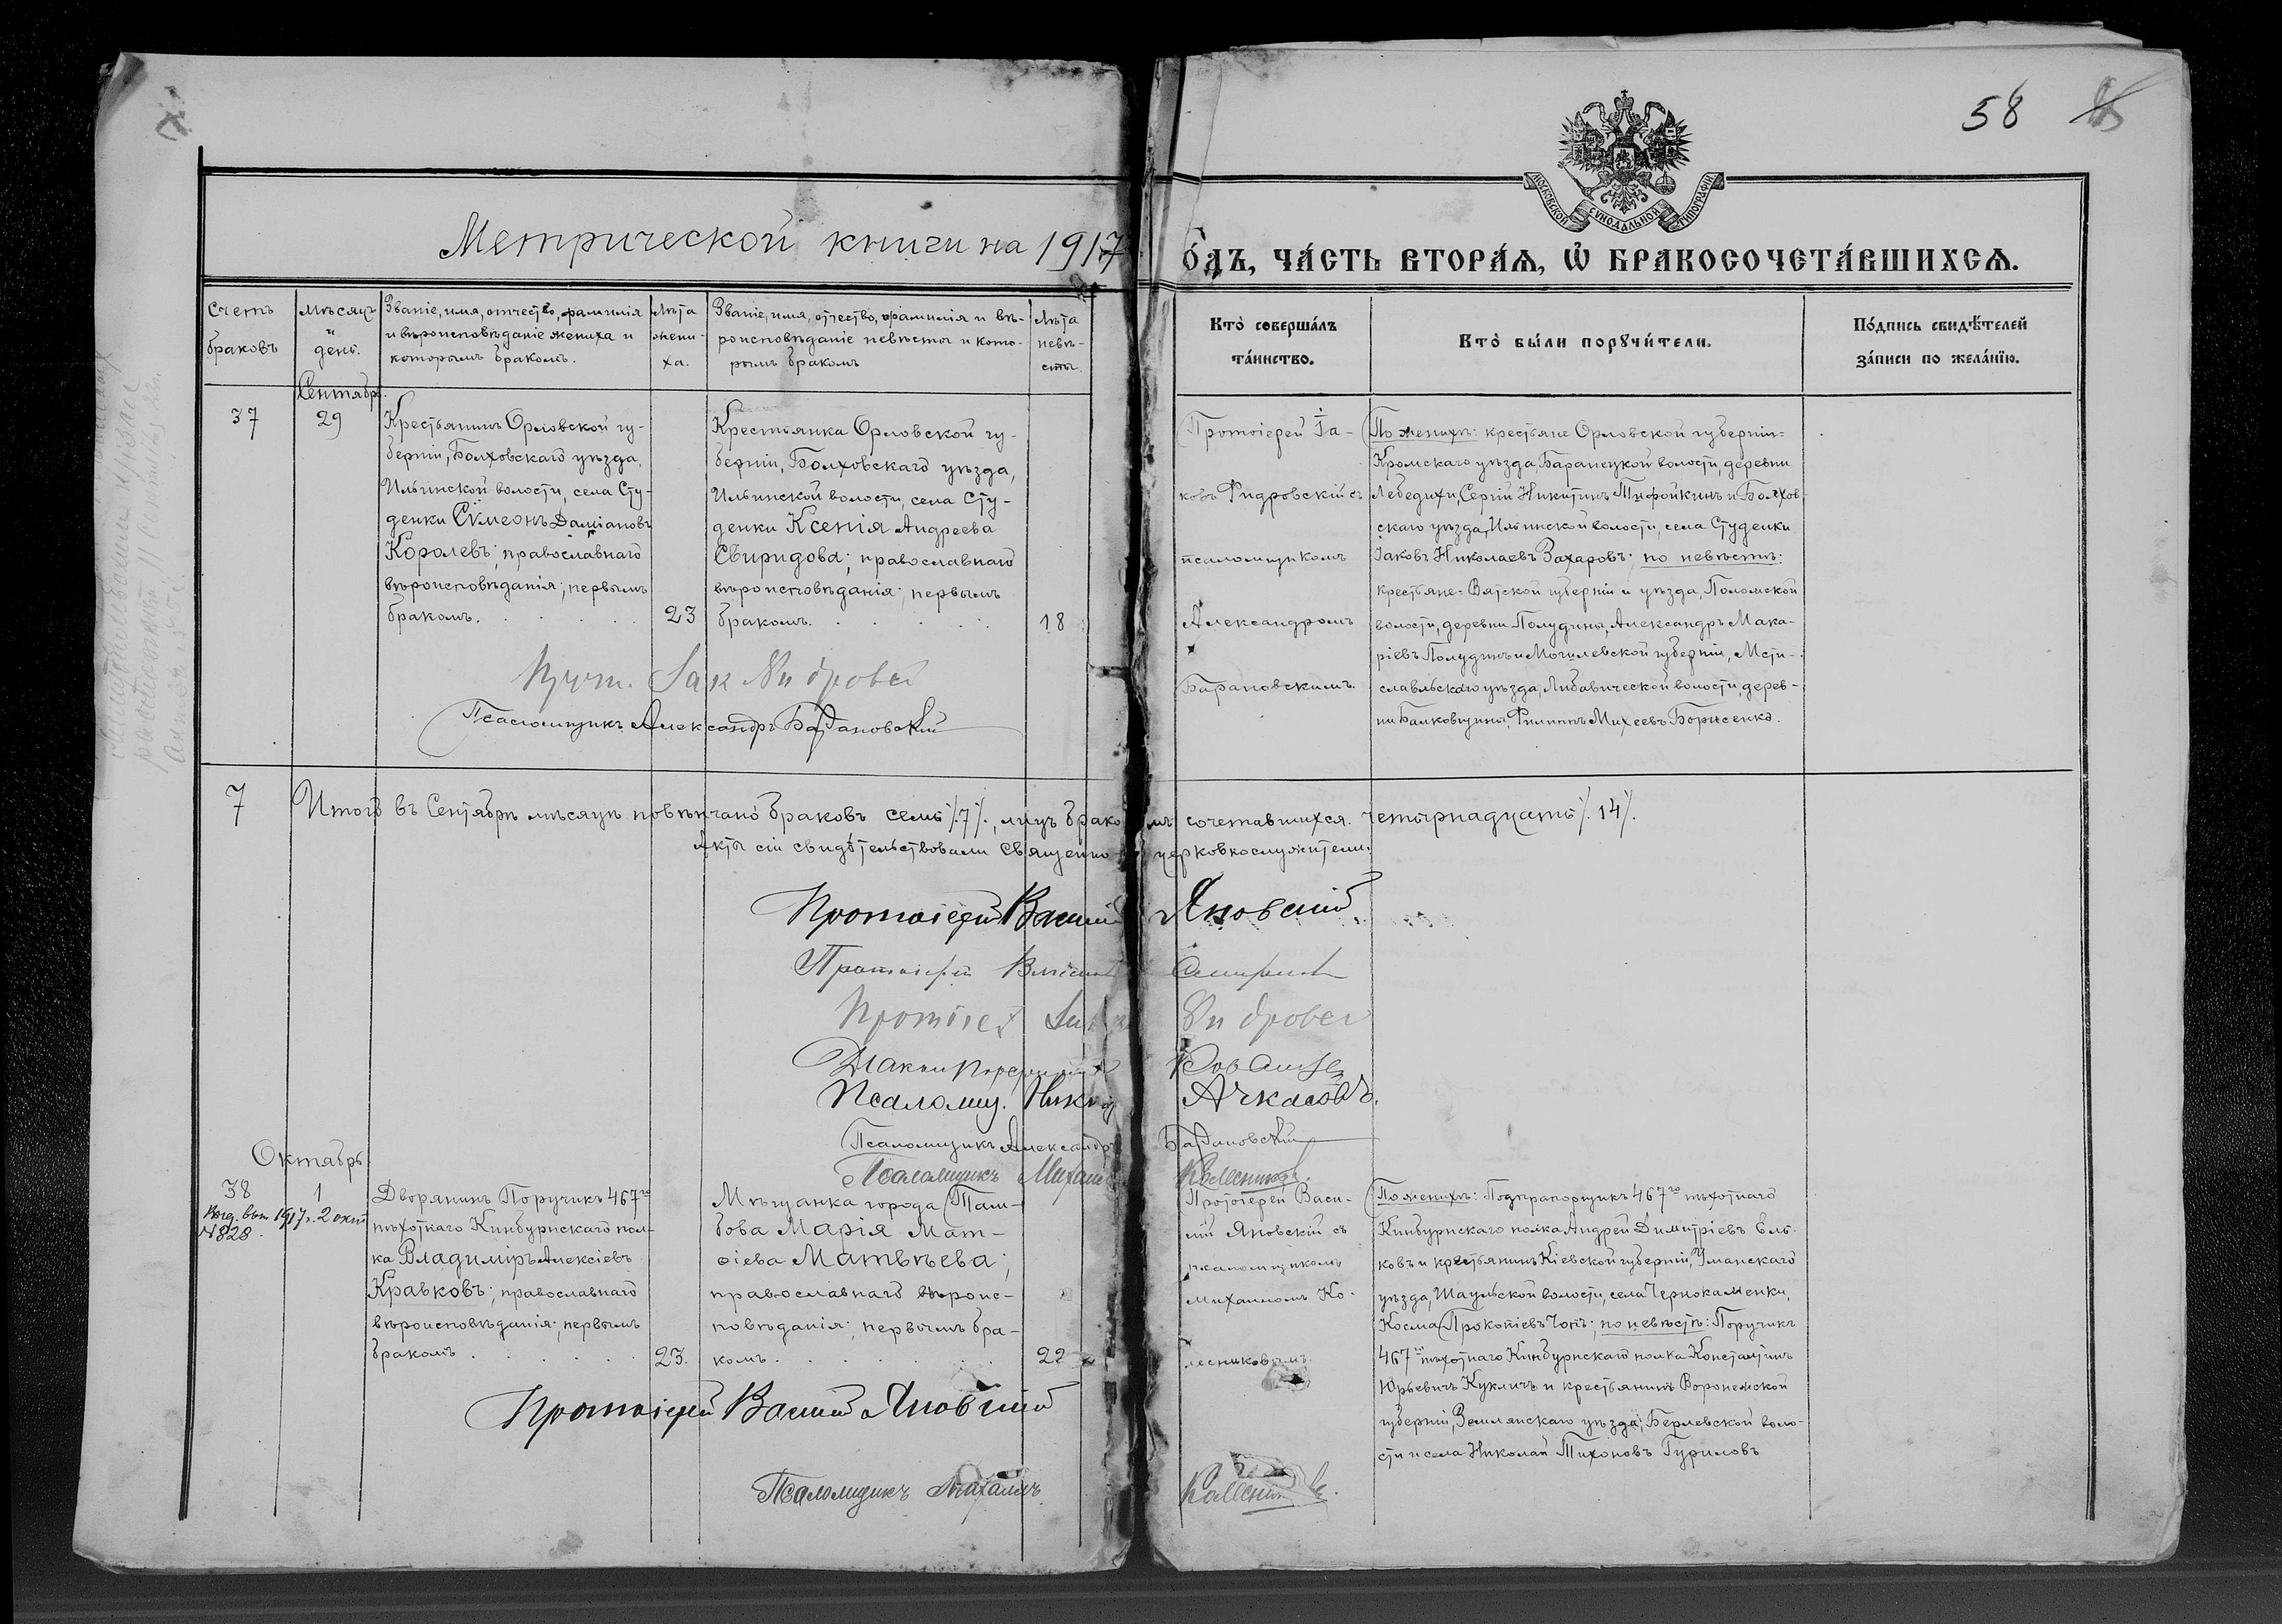 58
МОСКОВСКОЙ СѴНОДАЛЬНОЙ ТИПОГРАФІИ
Метрической книги на 1917
о́дъ, ча́сть втора́ѧ, ѡ҆ бракосочета́вшихсѧ.
Счетъ браковъ
Мѣсяцъ и день.
Званіе, имя, отчество, фамилія
и вѣроисповѣданіе жениха и
которымъ бракомъ.
Лѣта жени-
ха.
Званіе, имя, отчество, фамилія и вѣ-
роисповѣданіе невѣсты и кото-
рымъ бракомъ
Лѣта невѣ-
сты.
Кто̀ соверша́лъ
та́инство.
Кто̀ бы́ли порꙋчи́тели.
По́дпись свидѣ́телей
за́писи по жела́нїю.
Сентябрь.
37
29
Крестьянинъ Орловской гу-
берніи, Болховскаго уѣзда,
Ильинской волости, села Сту-
денки Сѵмеонъ Даміановъ
Королевъ; православнаго
вѣроисповѣданія; первымъ
бракомъ.
23
Крестьянка Орловской гу-
берніи, Болховскаго уѣзда,
Ильинской волости, села Сту-
денки Ксенія Андреева
Свиридова; православнаго
вѣроисповѣданія; первымъ
бракомъ.
18
Протоіерей Іа-
ковъ Фидровскій съ
псаломщикомъ
Александромъ
Барановскимъ.
По женихѣ: крестьяне Орловской губерніи=
Кромскаго уѣзда, Баранецкой волости, деревни
Лебедихи, Сергій Никитинъ и Болхов-
скаго уѣзда, Ильинской волости, села Студенки
Іаковъ Николаевъ Захаровъ; по невѣстѣ:
крестьяне= Вятской губерніи и уѣзда, Поломской
волости, деревни Полудины, Александръ Мака-
ріевъ Полудинъ и Могилевской губерніи, Мсти-
славльскаго уѣзда, волости, дерев-
ни Филиппъ Михеевъ Борисенко.
Прот. Іак
Псаломщикъ Александръ Барановскій
7
Итого въ Сентябрѣ мѣсяцѣ повѣнчано браковъ семь /.7/., лицъ бракомъ сочетавшихся четырнадцать /.14/.
Акты сіи свидѣтельствовали Священно церковнослужители:
Протоіерей Василій Яновскій
Протоіерей
Протоіер
Діаконъ
Псаломщ. Ачкасовъ.
Псаломщикъ Александръ Барановскій
Псаломщикъ Михаилъ Колесниковъ
Октябрь.
38
1
1917 г. 2 окт
№828.
Дворянинъ Поручикъ 467го
пѣхотнаго Кинбурнскаго пол-
ка Владиміръ Алексіевъ
Кравковъ; православнаго
вѣроисповѣданія; первымъ
бракомъ
23.
Мѣщанка города Там-
бова Марія Мат-
ѳіева Матвѣева;
православнаго вѣроис-
повѣданія; первымъ бра-
комъ.
22
Протоіерей Васи-
лій Яновскій съ
псаломщикомъ
Михаиломъ Ко-
лесниковымъ.
По женихѣ: Подпрапорщикъ 467го пѣхотнаго
Кинбурнскаго полка Андрей Димитріевъ Ель-
ковъ и крестьянинъ Кіевской губерніи, Уманскаго
уѣзда, волости, села Чернокаменки,
Косма Прокопіевъ; по невѣстѣ: Поручикъ
467го пѣхотнаго Кинбурнскаго полка Константинъ
Юрьевичъ Кукличъ и крестьянинъ Воронежской
губерніи, Землянскаго уѣзда, волос-
ти и села Николай Тихоновъ Гуриловъ
Протоіерей Василій Яновскій
Псаломщикъ Михаилъ